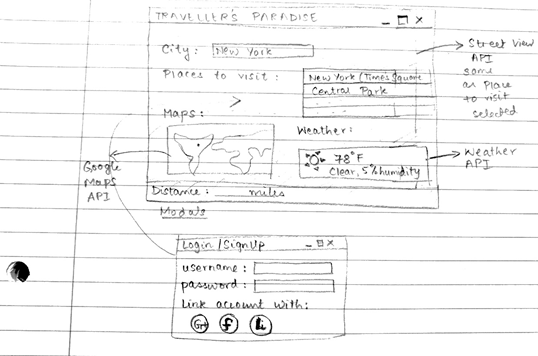 TRAVELLER'S PARADISE
City: New York
Places to visit: New York (Times Square
Central Park
>
Maps:
Weather:
78°F
Clear, 5% humidity
Distance: miles
Street View
API
same
as place
to visit
selected
Weather
API
Google
Maps
API
Modals
Login/SignUp
username:
password:
Link account with:
G+ f li